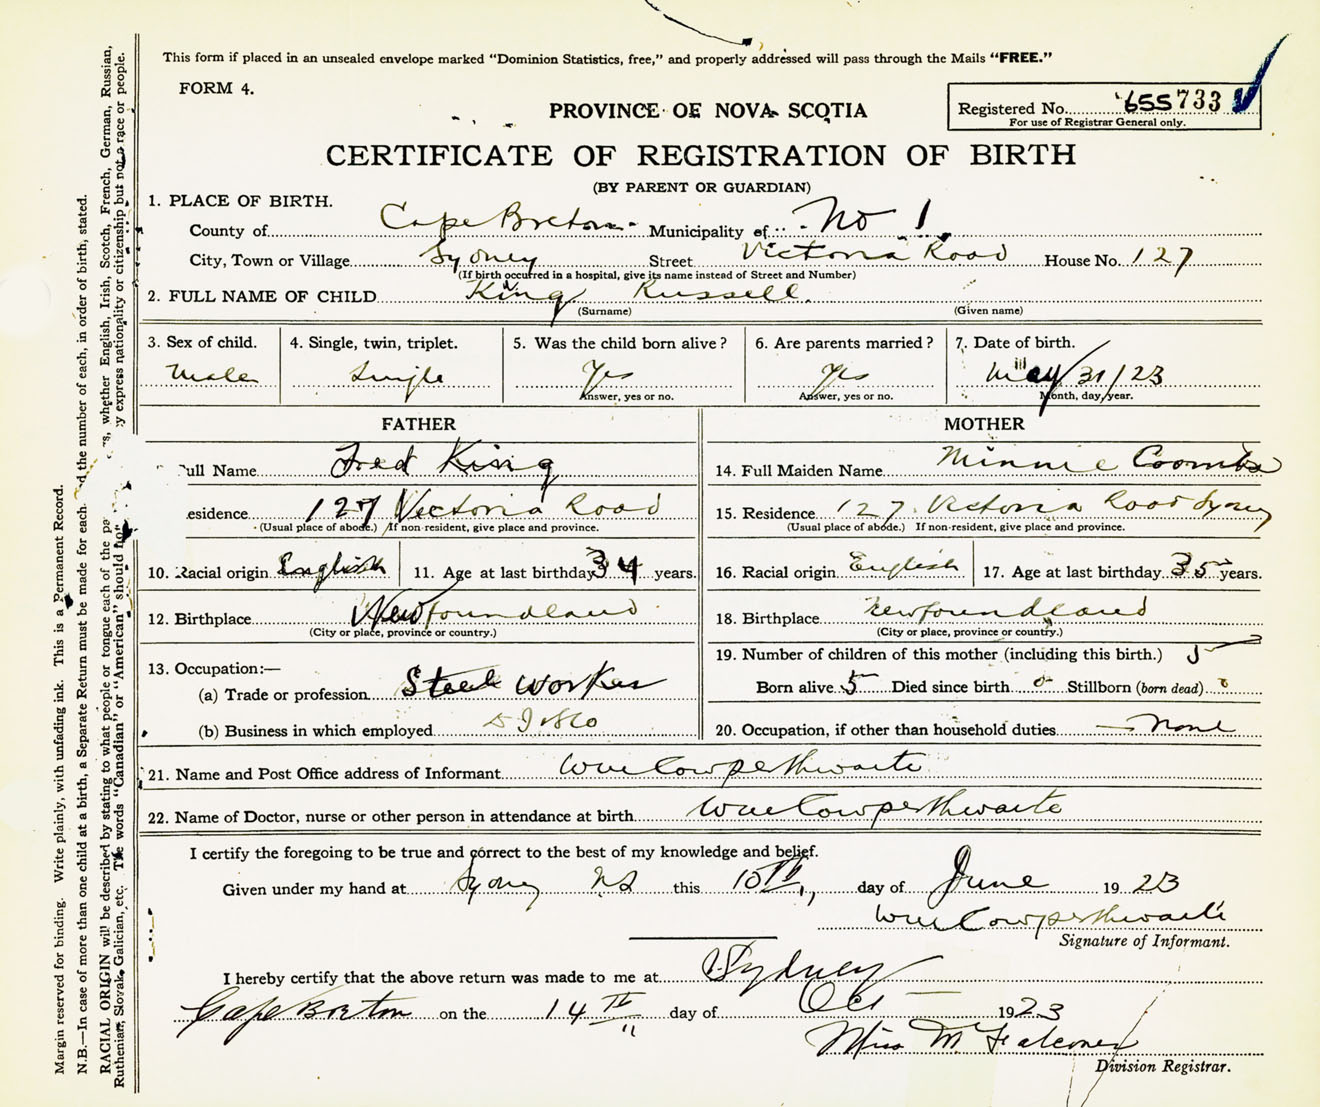 This form if placed in an unsealed envelope marked "Dominion Statistics, free," and properly addressed will pass through the Mails "FREE."
FORM 4.
PROVINCE OF NOVA SCOTIA
Registered No. 655733
For use of Registrar General only.
CERTIFICATE OF REGISTRATION OF BIRTH
(BY PARENT OR GUARDIAN)
1. PLACE OF BIRTH.
County of Cape Breton Municipality of No 1
City, Town or Village Sydney Street Victoria Road House No. 127
(If birth occurred in a hospital, give its name instead of Street and Number)
2. FULL NAME OF CHILD King Russell
(Surname) (Given name)
3. Sex of child. 4. Single, twin, triplet. 5. Was the child born alive? 6. Are parents married? 7. Date of birth.
Male Single Yes Yes May/31/23
Answer, yes or no. Answer, yes or no. Month, day, year.
FATHER MOTHER
ull Name Fred King 14. Full Maiden Name Minnie Coombs
esidence 127 Victoria Road 15. Residence 127 Victoria Road Sydney
(Usual place of abode.) If non-resident, give place and province. (Usual place of abode.) If non-resident, give place and province.
10. Racial origin English 11. Age at last birthday 34 years. 16. Racial origin English 17. Age at last birthday 35 years.
12. Birthplace Newfoundland 18. Birthplace Newfoundland
(City or place, province or country.) (City or place, province or country.)
13. Occupation:— 19. Number of children of this mother (including this birth.) 5
(a) Trade or profession Steel Worker Born alive 5 Died since birth 0 Stillborn (born dead) 0
(b) Business in which employed 20. Occupation, if other than household duties — None
21. Name and Post Office address of Informant Wm Cowperthwaite
22. Name of Doctor, nurse or other person in attendance at birth Wm Cowperthwaite
I certify the foregoing to be true and correct to the best of my knowledge and belief.
Given under my hand at Sydney NS this 10th day of June 1923
Wm Cowperthwaite
Signature of Informant.
I hereby certify that the above return was made to me at Sydney
Cape Breton on the 14th day of Oct 1923
Miss M Falconer
Division Registrar.
Margin reserved for binding. Write plainly, with unfading ink. This is a Permanent Record.
N.B.—In case of more than one child at a birth, a Separate Return must be made for each the number of each, in order of birth, stated.
RACIAL ORIGIN will be described by stating to what people or tongue each of the whether English, Irish, Scotch, French, German, Russian,
Ruthenian, Slovak, Galician, etc. The words "Canadian" or "American" should not express nationality or citizenship but not a race or people.